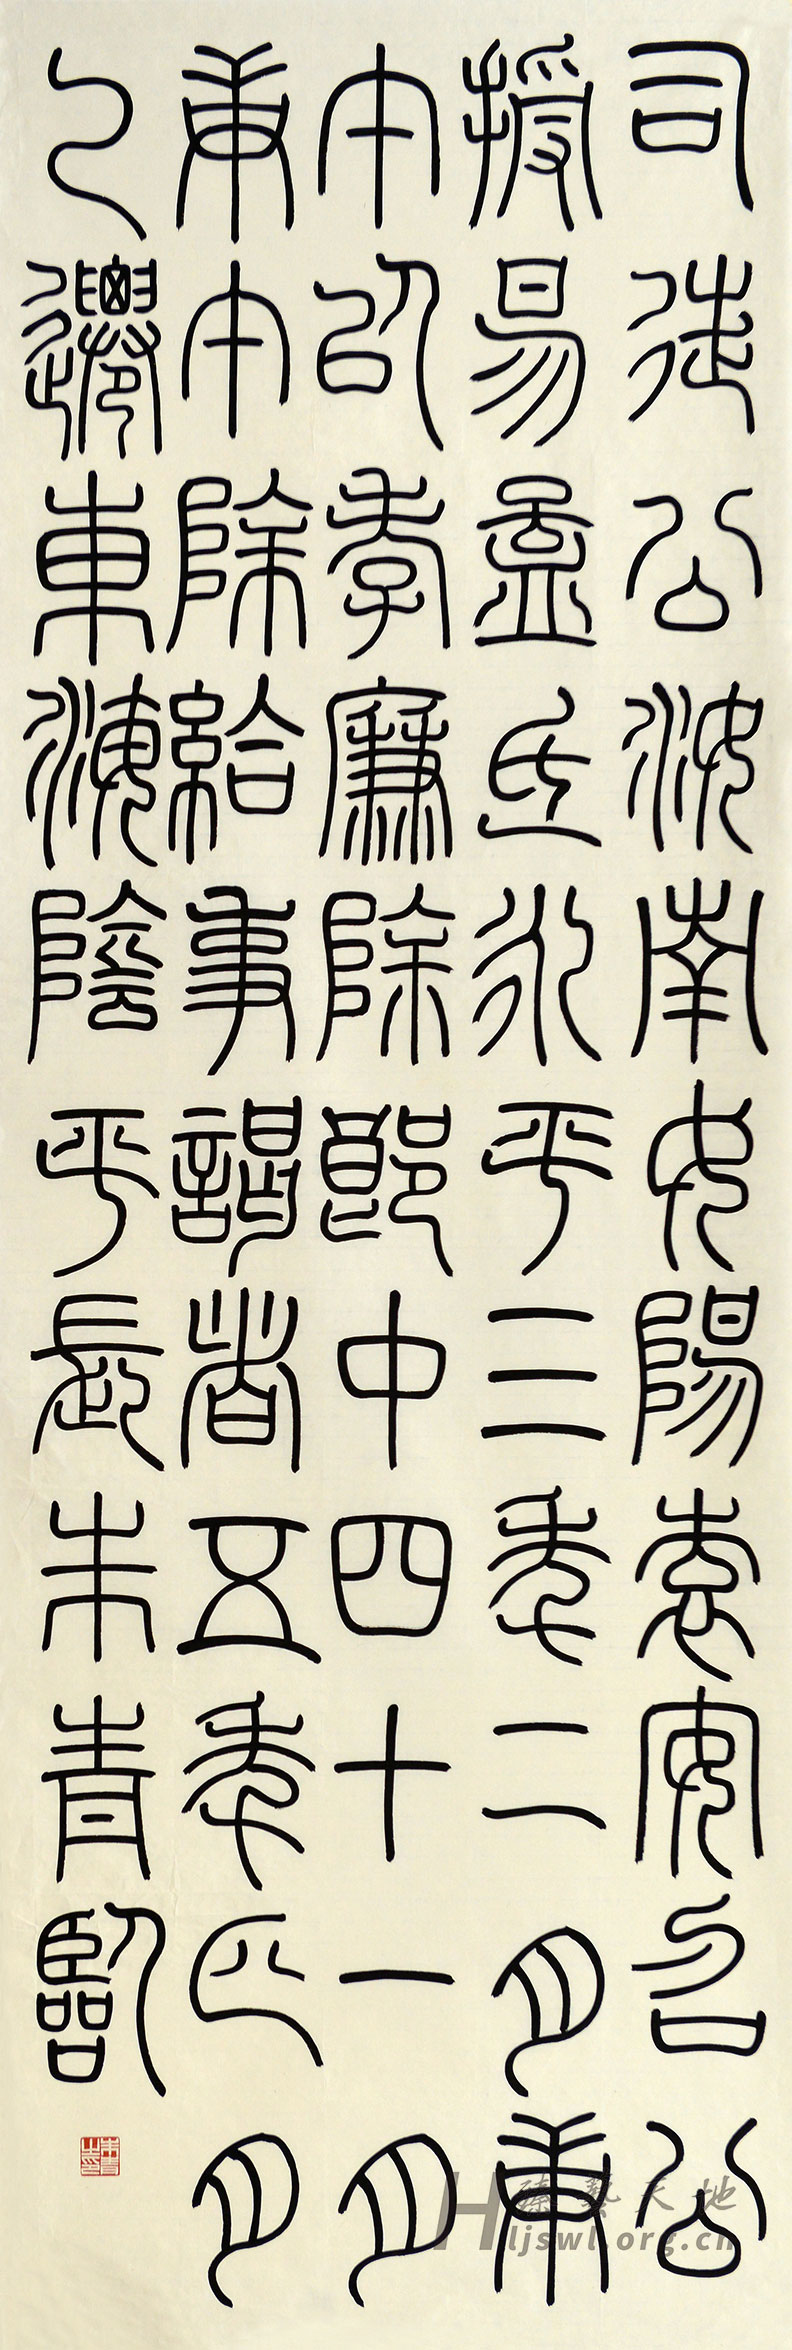 司徒公汝南女陽袁安召公
授易孟氏永平三年二月庚
午以孝廉除郎中四十一月
庚午除給事謁者五年四月
乙遷東海陰平長朱青臨
臻藝天地
Hljswl.org.cn